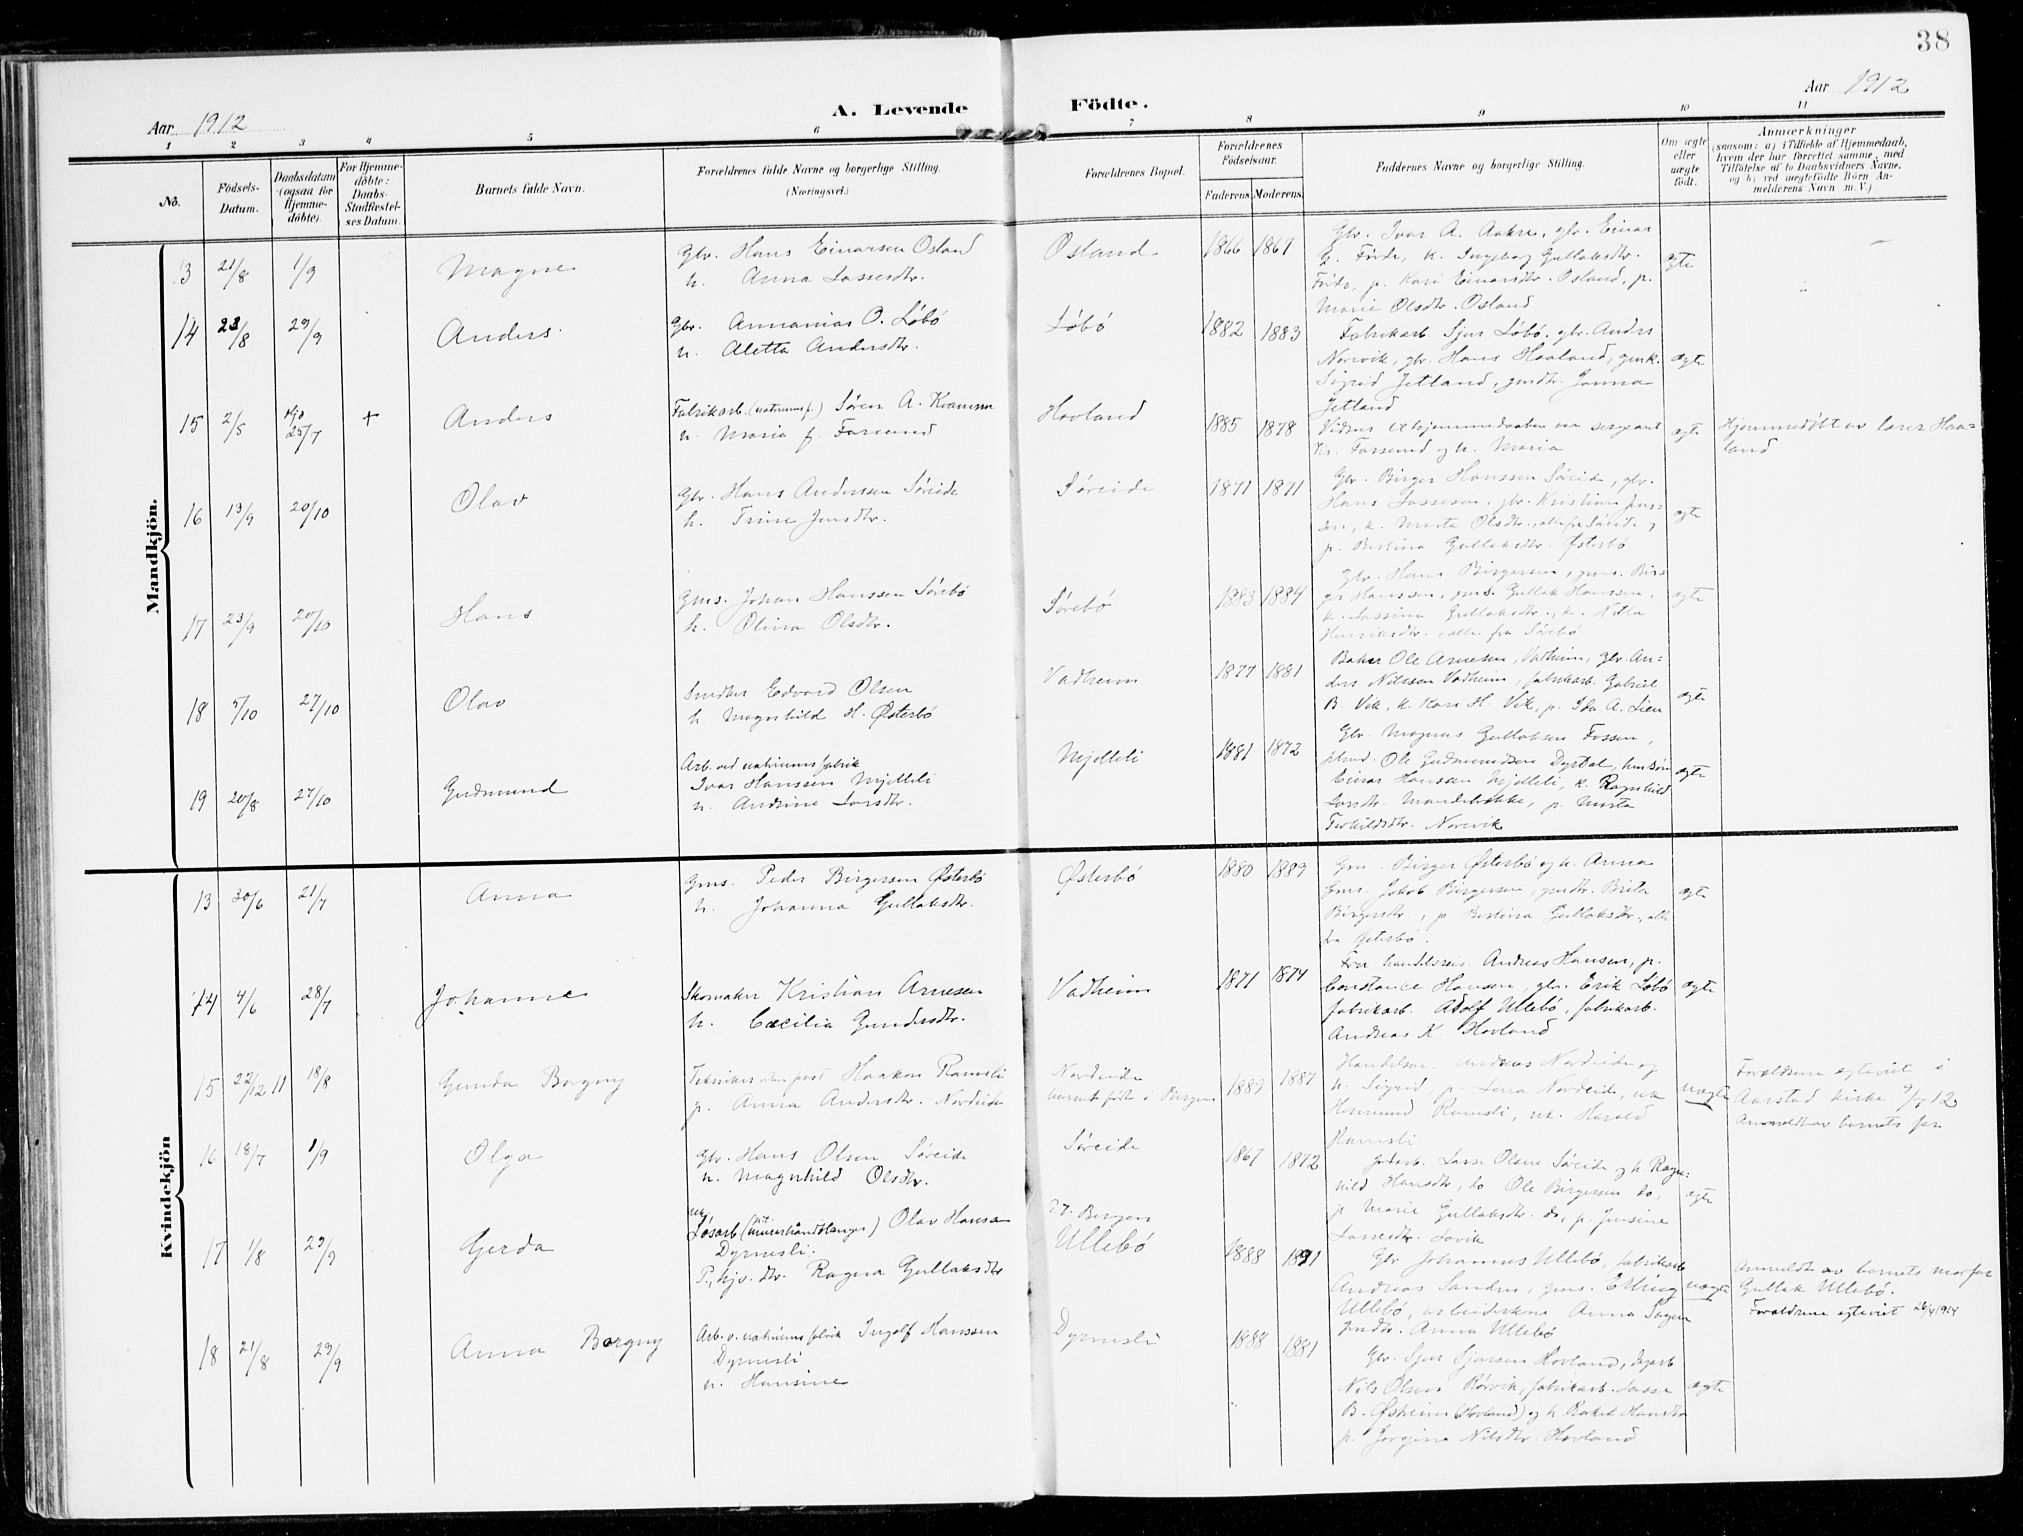 38
Aar 1912
A. Levende
Födte.
Aar 1912
1 2 3 4 5 6 7 8 9 10 11
No.
Födsels-
Datum.
Daabsdatum
(ogsaa for
Hjemme-
döbte).
For Hjemme-
döbte:
Daabs-
Stadfæstel-
ses Datum.
Barnets fulde Navn.
Forældrenes fulde Navne og borgerlige Stilling.
(Næringsvei.)
Forældrenes Bopæl.
Forældrenes
Födselsaar.
Faderens. Moderens.
Faddernes Navne og borgerlige Stilling.
Om ægte
eller
uægte
födt.
Anmærkninger
(saasom: a) i Tilfælde af Hjemmedaab,
hvem der har forrettet samme, med
Tilföielse af to Daabsvidners Navne,
og b) ved uægtefödte Börn An-
melderens Navn m. V.)
Mandkjön.
13 21/8 1/9 Magne
Gbr. Hans Einarsen Osland
h. Anna Lassesdtr.
Osland 1866 1867
Gbr. Ivar A. Aakre, gbr. Einar
G. Förde, k. Ingeborg Gullaksdtr.
Förde, p. Kari Einarsdtr. Osland, p.
Marie Olsdtr. Osland
ægte
14 23/8 29/9 Anders
Gbr. Annanias O. Løbø
h. Aletta Andersdtr.
Løbø 1882 1883
Fabrikarb. Sjur Løbø, gbr. Anders
Norevik, gbr. Hans Hovland, gmk.
Sigrid Jetland, gmdtr. Janna
Jetland
ægte
15 2/5 25/7 + Anders
Fabrikarb. (natriumsf.) Søren A. Kvamme
h. Maria f. Farsund
Hovland 1885 1878
Vidner v hjemmedaaben var sergeant
Kr. Farsund og h. Maria
ægte
Hjemmedøbt av lærer Haa-
land
16 13/9 20/10 Olav
Gbr. Hans Anderssen Søreide
h. Trine Jensdtr.
Søreide 1871 1871
Gbr. Birger Hanssen Søreide, gbr.
Hans Lassesen, gbr. Kristian Jens-
sen, k. Marta Olsdtr., alle fra Søreide, og
p. Bertina Gullaksdtr. Østerbø
ægte
17 23/9 20/10 Hans
Gms. Johan Hanssen Sørebø
h. Olina Olsdtr.
Sørebø 1883 1884
Gbr. Hans Birgersen, gms. Bir-
ger Hanssen, gms. Gullak Hanssen,
k. Lassina Gullaksdtr., k. Nilla
Henriksdtr., alle fra Sørebø
ægte
18 5/10 27/10 Olav
Smed Edvard Olsen
h. Magnhild H. Østerbø
Vadheim 1877 1881
Baker Ole Arnesen, Vadheim, gbr. An-
ders Nilssen Vadheim, fabrikarb. Gabriel
B. Vik, k. Kari H. Vik, p. Ida A. Lien
ægte
19 20/8 27/10 Gudmund
Arb. ved natriumsfabrik
Ivar Hanssen Mjelleli
h. Andrine Larsdtr.
Mjelleli 1881 1872
Gbr. Magnus Gullaksen Fossen,
Ole Gudmundsen Dyrdal,
Einar Hanssen Mjelleli, k. Ragnhild
Larsdtr. p. Marta
Terkildsdtr. Norevik
ægte
Kvindekjön
13 30/6 21/7 Anna
Gms. Peder Birgersen Østerbø
h. Johanna Gullaksdtr.
Østerbø 1880 1889
Gm. Birger Østerbø og h. Anna
Gms. Jakob Birgersen, gmdtr. Brita
Birgersdtr., p. Bertina Gullaksdtr., alle
fra Østerbø.
ægte
14 4/6 28/7 Johanne
Skomaker Kristian Arnesen
h. Cæcilia Gundersdtr.
Vadheim 1871 1874
Fru handelsreis. Andreas Hansen, p.
Constance Hansen, gbr. Erik Løbø
fabrikarb. Adolf Ullebø, fabrikarb.
Andreas K. Hovland
ægte
15 22/12 11 18/8 Gunda Borgny
Tekniker uten post Haakon Ramsli
p. Anna Andersdtr. Nordeide
Nordeide
barnet født i Bergen
1889 1887
Handelsm. Andreas Nordeide og
h. Sigrid, p. Lina Nordeide, uk
Hermund Ramsli, uk. Harald
Ramsli
uægte
Forældrene egteviet i
Aarstad kirke 9/7 12
Anmeldt av barnets far
16 18/7 1/9 Olga
Gbr. Hans Olsen Søreide
h. Magnhild Olsdtr.
Søreide 1867 1872
Lasse Olsen Søreide og h. Ragn-
hild Hansdtr, do Ole Birgersen do,
p. Marie Gullaksdtr. do, p. Jensine
Lassesdtr. Lavik
ægte
17 1/8 29/9 Gerda
uk
Løsarb (murerhandlanger) Olav Hansen
Dyrnesli.
P., hjv. dtr. Ragna Gullaksdtr
P.T. Bergen
Ullebø 1888 1891
Gbr Johannes Ullebø, fabrikarb
Andreas Sandnes, gms. Elling
Ullebø, arbeiderske Anna
gmdtr. Anna Ullebø
uægte
Anmeldt av barnets morfar
Gullak Ullebø.
Forældrene egteviet 26/4 1914
18 21/8 29/9 Anna Borgny
Arb. v. natriums fabrik Ingolf Hanssen
Dyrnesli
h. Hansine
Dyrnesli 1888 1881
Gbr. Sjur Sjursen Hovland, dagarb
Nils Olsen Rørvik, fabrikarb. Lasse
B. Østerbø (Hovland) og h. Rakel Hansdtr
p. Jorgine Nilsdtr. Hovland
ægte